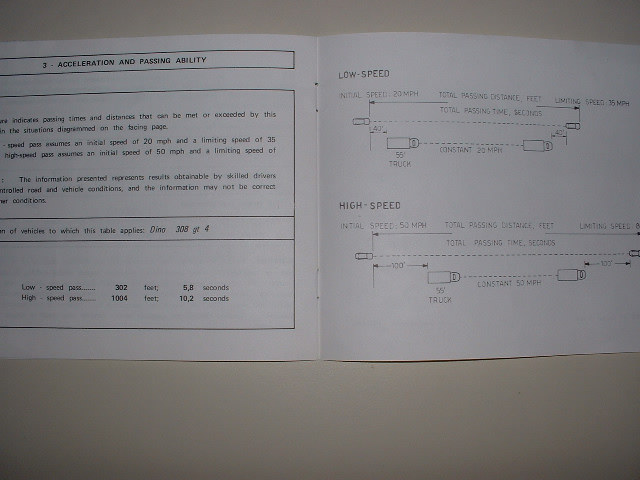 3 - ACCELERATION AND PASSING ABILITY
indicates passing times and distances that can be met or exceeded by this
in the situations diagrammed on the facing page.
- speed pass assumes an initial speed of 20 mph and a limiting speed of 35
high-speed pass assumes an initial speed of 50 mph and a limiting speed of
: The information presented represents results obtainable by skilled drivers
road and vehicle conditions, and the information may not be correct
conditions.
of vehicles to which this table applies: Dino 308 gt 4
Low - speed pass...... 302 feet; 5,8 seconds
High - speed pass...... 1004 feet; 10,2 seconds
LOW-SPEED
INITIAL SPEED: 20 MPH TOTAL PASSING DISTANCE, FEET LIMITING SPEED: 35 MPH
TOTAL PASSING TIME, SECONDS
40' 40'
D CONSTANT 20 MPH D
55'
TRUCK
HIGH-SPEED
INITIAL SPEED: 50 MPH TOTAL PASSING DISTANCE, FEET LIMITING SPEED: 8
TOTAL PASSING TIME, SECONDS
100' 100'
D CONSTANT 50 MPH D
55'
TRUCK